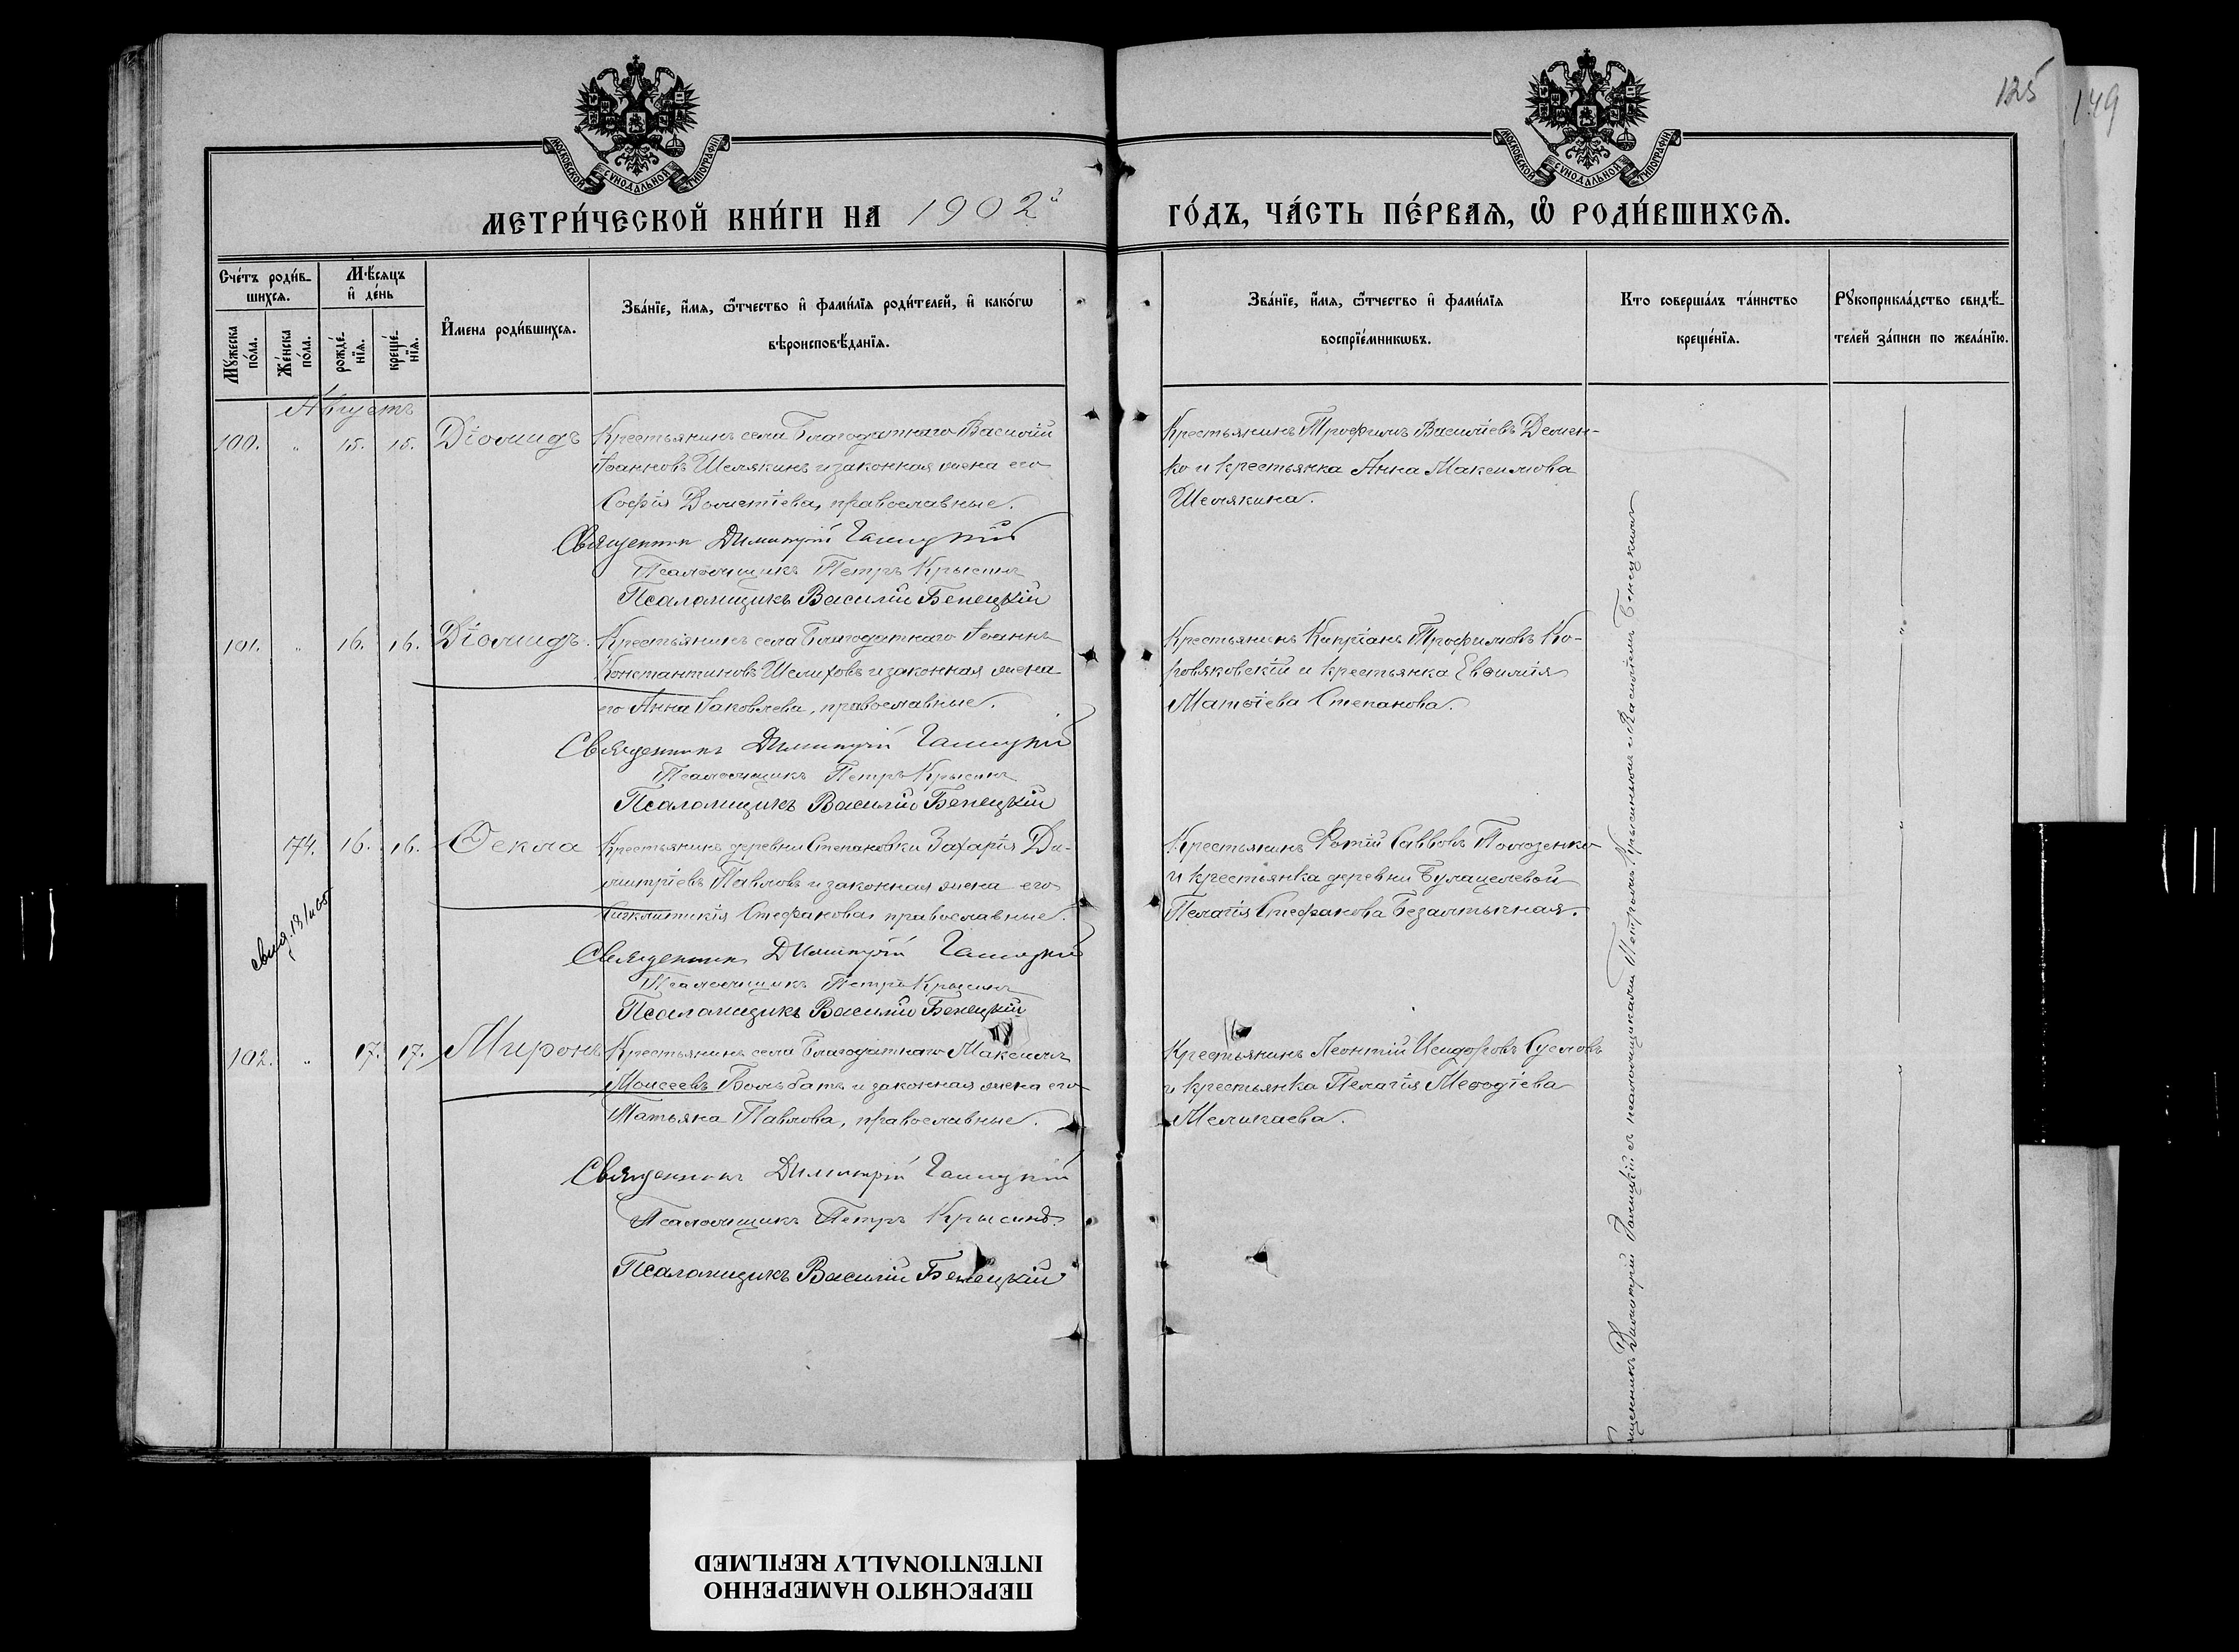 125
149
МОСКОВСКОЙ СѴНОДАЛЬНОЙ ТИПОГРАФІИ
МОСКОВСКОЙ СѴНОДАЛЬНОЙ ТИПОГРАФІИ
МЕТРИ́ЧЕСКОЙ КНИ́ГИ НА 1902й
ГО́ДЪ, ЧА́СТЬ ПЕ́РВАѦ, Ѡ РОДИ́ВШИХСѦ.
Счéтъ роди́в-
шихсѧ.
Мѣ́сѧцъ
и҆ дéнь
Мꙋ́жеска
по́ла.
Же́нска
по́ла.
рожде́-
нїѧ.
креще́-
нїѧ.
И҆мена роди́вшихсѧ.
Зва́нїе, и҆́мѧ, ѻ҆́тчество и҆ фами́лїѧ роди́телей, и҆ како́гѡ
вѣроисповѣ́данїѧ.
Зва́нїе, и҆́мѧ, ѻ҆́тчество и҆ фами́лїѧ
воспрїе́мникѡвъ.
Кто соверша́лъ та́инство
креще́нїѧ.
Рꙋкоприкла́дство свидѣ́-
телей за́писи по жела́нїю.
Августъ
100. „ 15. 15. Діомидъ
Крестьянинъ села Благодатнаго Василій
Іоанновъ Шемякинъ и законная жена его
Софія Дометіева, православные.
Священник Димитрій Галицкій
Псаломщикъ Петръ Крысинъ
Псаломщикъ Василій Бенецкій
Крестьянинъ Трофимъ Васильевъ Демен-
ко и крестьянка Анна Максимова
Шемякина.
101. „ 16. 16. Діомидъ.
Крестьянинъ села Благодатнаго Іоаннъ
Константиновъ Шелиховъ и законная жена
его Анна Іаковлева, православные.
Священникъ Димитрій Галицкій
Псаломщикъ Петръ Крысинъ
Псаломщикъ Василій Бенецкій
Крестьянинъ Кипріанъ Трофимовъ Ко-
ровяковскій и крестьянка Евѳимія
Матѳіева Степанова.
174. 16. 16. Ѳекла
Крестьянинъ деревни Степановки Захарія Ди-
митріевъ Павловъ и законная жена его
Синклитикія Стефанова, православные.
Священникъ Димитрій Галицкій
Псаломщикъ Петръ Крысинъ
Псаломщикъ Василій Бенецкій
Крестьянинъ Фотій Саввовъ Полозенко
и крестьянка деревни Булацелевой
Пелагія Стефанова Безалтычная.
свид.
102. „ 17. 17. Миронъ
Крестьянинъ села Благодатнаго Максимъ
Моисеевъ Болбатъ и законная жена его
Татьяна Павлова, православные.
Священникъ Димитрій Галицкій
Псаломщикъ Петръ Крысинъ.
Псаломщикъ Василій Бенецкій
Крестьянинъ Леонтій Исидоровъ Сусловъ
и крестьянка Пелагія Меѳодіева
Меликаева.
Священникъ Димитрій Галицкій съ псаломщиками Петромъ Крысинымъ и Василіемъ Бенецкимъ
ПЕРЕСНЯТО НАМЕРЕННО
INTENTIONALLY REFILMED